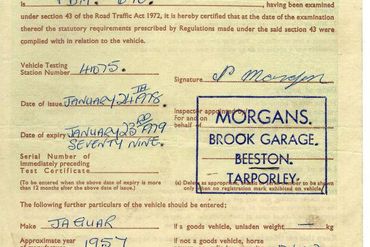 Is , having been examined
under section 43 of the Road Traffic Act 1972, it is hereby certified that at the date of the examination
thereof the statutory requirements prescribed by Regulations made under the said section 43 were
complied with in relation to the vehicle.
Vehicle Testing
Station Number 41075.
Signature
Date of issue JANUARY 24th 1978.
MORGANS.
BROOK GARAGE.
BEESTON.
TARPORLEY.
Date of expiry JANUARY 23RD 1979
SEVENTY NINE.
Serial Number of
immediately preceding
Test Certificate
(To be entered when the above date of expiry is more
than 12 months after the above date of issue.)
The following further particulars of the vehicle should be entered:
Make JAGUAR
If a goods vehicle, unladen weight kg
Approximate year 1957
If not a goods vehicle, horse